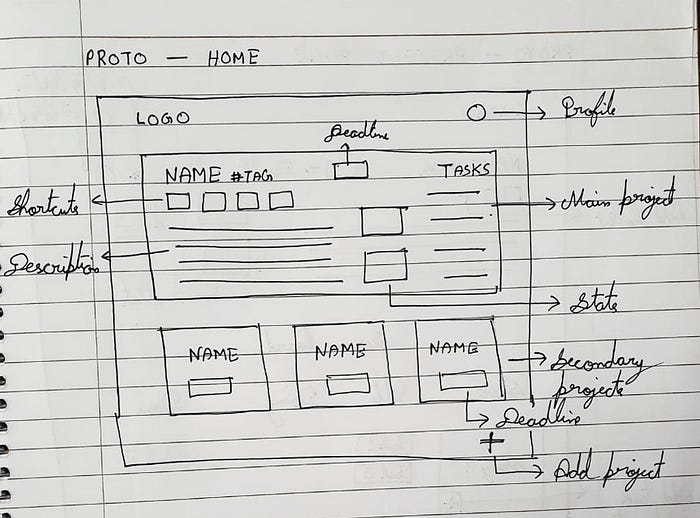 PROTO — HOME
LOGO
Profile
Deadline
NAME #TAG
TASKS
Shortcuts
Main project
Description
State
NAME
NAME
NAME
Secondary
projects
Deadline
+
Add project